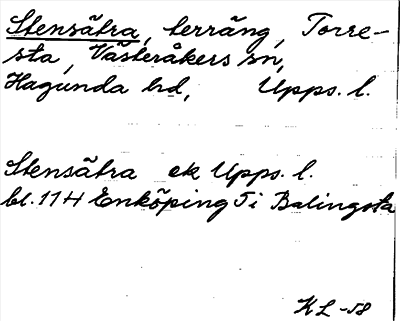 Stensätra, terräng, Torre-
sta, Västeråkers sn,
Hagunda hd, Upps. l.
Stensätra ek Upps. l.
bl. 11 H Enköping 5 i Balingsta
KL -58